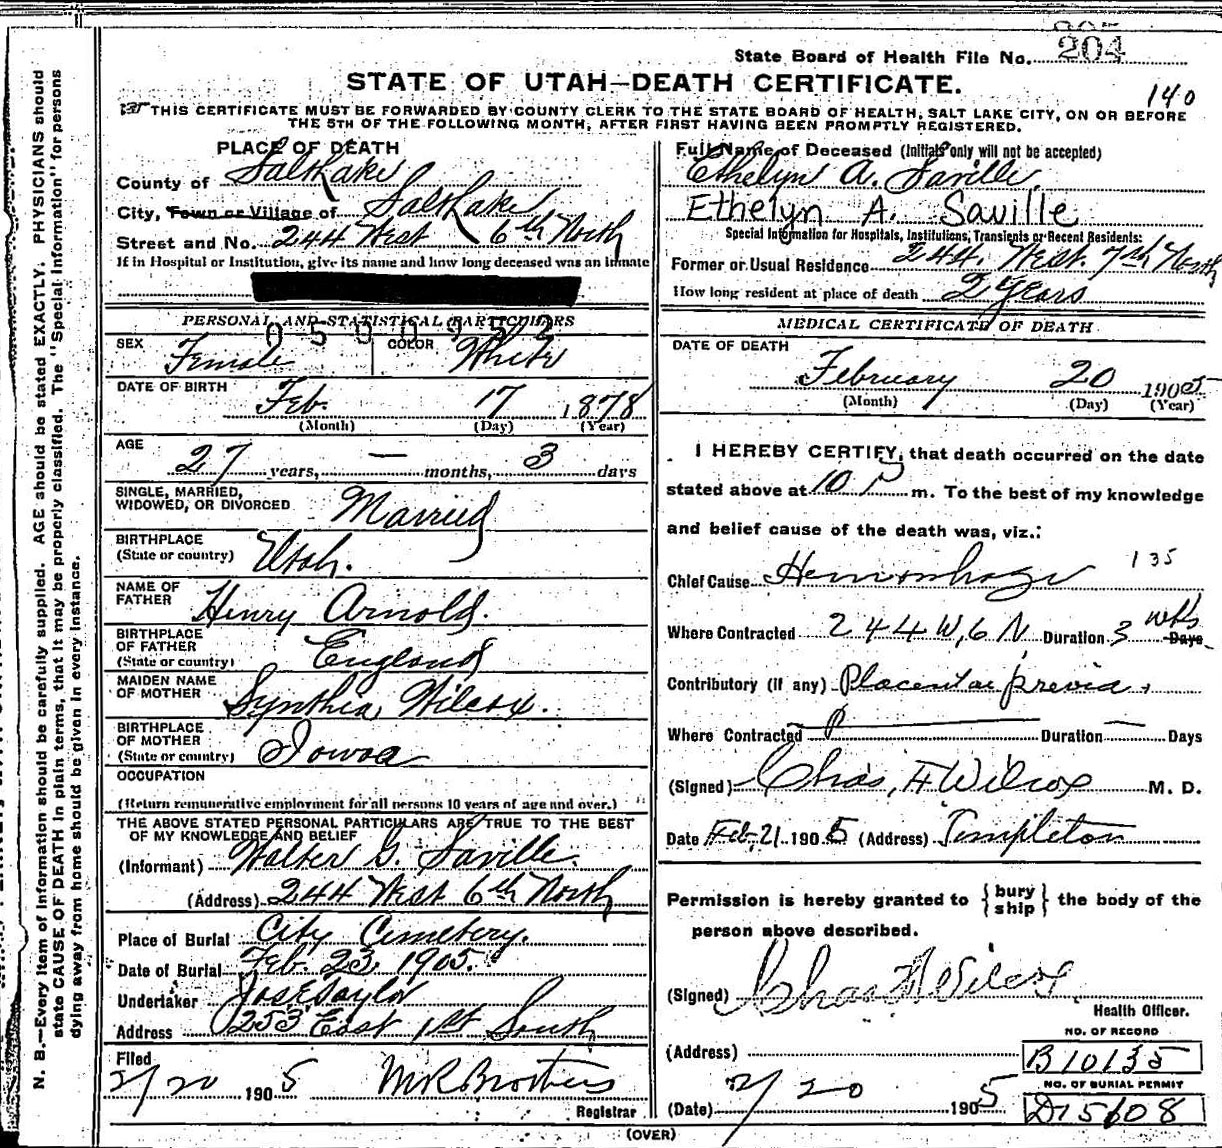 State Board of Health File No. 204
STATE OF UTAH—DEATH CERTIFICATE.
140
THIS CERTIFICATE MUST BE FORWARDED BY COUNTY CLERK TO THE STATE BOARD OF HEALTH, SALT LAKE CITY, ON OR BEFORE
THE 5TH OF THE FOLLOWING MONTH, AFTER FIRST HAVING BEEN PROMPTLY REGISTERED.
N. B.—Every item of Information should be carefully supplied. AGE should be stated EXACTLY. PHYSICIANS should
state CAUSE OF DEATH in plain terms, that it may be properly classified. The "Special Information" for persons
dying away from home should be given in every instance.
PLACE OF DEATH
County of Salt Lake
City, Town or Village of Salt Lake
Street and No. 244 West 6th North
If in Hospital or Institution, give its name and how long deceased was an inmate
PERSONAL AND STATISTICAL PARTICULARS
0500952
SEX Female COLOR White
DATE OF BIRTH
Feb. 17, 1878
(Month) (Day) (Year)
AGE
27 years, — months, 3 days
SINGLE, MARRIED,
WIDOWED, OR DIVORCED Married
BIRTHPLACE
(State or country) Utah.
NAME OF
FATHER Henry Arnold.
BIRTHPLACE
OF FATHER
(State or country) England
MAIDEN NAME
OF MOTHER Synthia Wilcox.
BIRTHPLACE
OF MOTHER
(State or country) Iowa
OCCUPATION
(Return remunerative employment for all persons 10 years of age and over.)
THE ABOVE STATED PERSONAL PARTICULARS ARE TRUE TO THE BEST
OF MY KNOWLEDGE AND BELIEF
(Informant) Walter G. Saville.
(Address) 244 West 6th North
Place of Burial City Cemetery.
Date of Burial Feb. 23, 1905.
Undertaker Jos E Taylor
Address 253 East 1st South
Filed
2/20 1905 Brothers
Registrar
Full Name of Deceased (Initials only will not be accepted)
Ethelyn A. Saville
Ethelyn A. Saville
Special Information for Hospitals, Institutions, Transients or Recent Residents:
Former or Usual Residence 244. West 7th North
How long resident at place of death 2 Years
MEDICAL CERTIFICATE OF DEATH
DATE OF DEATH
February 20 1905
(Month) (Day) (Year)
I HEREBY CERTIFY, that death occurred on the date
stated above at 10 P m. To the best of my knowledge
and belief cause of the death was, viz.:
Chief Cause Hemorrhage 135
Where Contracted 244 W, 6 N Duration 3 wks Days
Contributory (if any) Placentae previa.
Where Contracted Duration — Days
(Signed) Chas, F Wilcox M. D.
Date Feb, 21 1905 (Address) Templeton
Permission is hereby granted to {bury ship} the body of the
person above described.
(Signed) Chas F Wilcox
Health Officer.
NO. OF RECORD
(Address) B10135
NO. OF BURIAL PERMIT
(Date) 2/20 1905 D15608
(OVER)